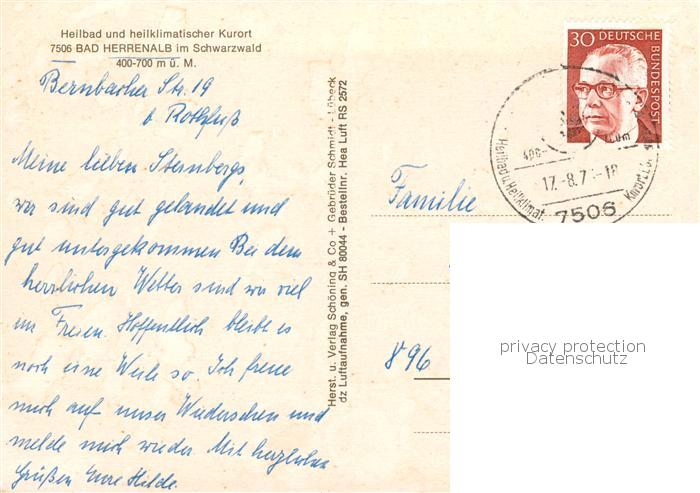 Heilbad und heilklimatischer Kurort
7506 BAD HERRENALB im Schwarzwald
400-700 m ü. M.
Bernbacher Str. 19
b. Rothfuß
Meine lieben Sternbergs,
wir sind gut gelandet und
gut untergekommen Bei dem
herrlichen Wetter sind wir viel
im Freien. Hoffentlich bleibt es
noch eine Weile so. Ich freue
mich auf unser Wiedersehen und
melde mich wieder Mit herzlichen
Grüßen Eure Hilde.
Herst. u. Verlag Schöning & Co + Gebrüder Schmidt - Lübeck
dz Luftaufnahme, gen. SH 80044 - Bestellnr. Hea Luft RS 2572
30 DEUTSCHE
BUNDESPOST
Heilbad u. Heilklimat. Kurort
400-
17.-8.7 -18
7506
Familie
896
privacy protection
Datenschutz